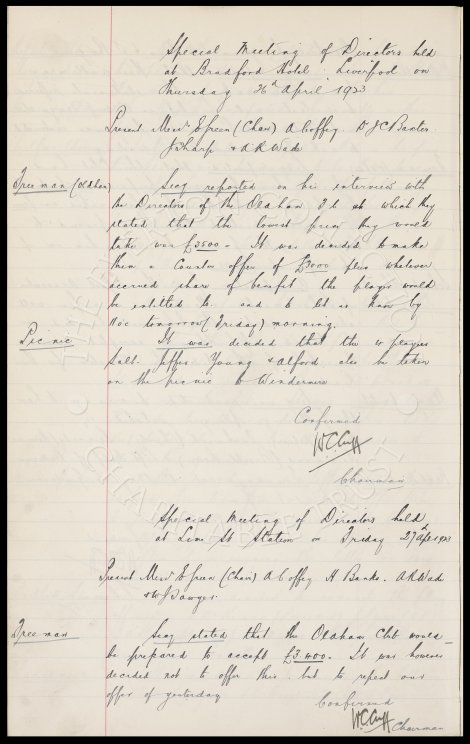 Special Meeting of Directors held
at Bradford Hotel. Liverpool on
Thursday 26th April 1923
Present Messrs E Green (Chair) A Coffey. Dr J C Baxter.
J Sharp & A R Wade
Freeman (Oldham)
Secy reported on his interview with
the Directors of the Oldham F.C. at which they
stated that the lowest price they would
take was £3500 - It was decided to make
them a counter offer of £3000 plus whatever
accrued share of benefit the player would
be entitled to and to let us know by
noon tomorrow (Friday) morning.
Picnic
It was decided that the players
Salt. Jeffs Young & Alford also be taken
on the picnic to Windermere
Confirmed
W.C. Cuff
Chairman
Special Meeting of Directors held
at Lime St Station on Friday 27 April 1923
Present Messrs E Green (Chair) A Coffey H Banks. A R Wade
& W J Sawyer.
Freeman
Secy stated that the Oldham Club would
be prepared to accept £3,400. It was however
decided not to offer this but to repeat our
offer of yesterday
Confirmed
W.C. Cuff
Chairman